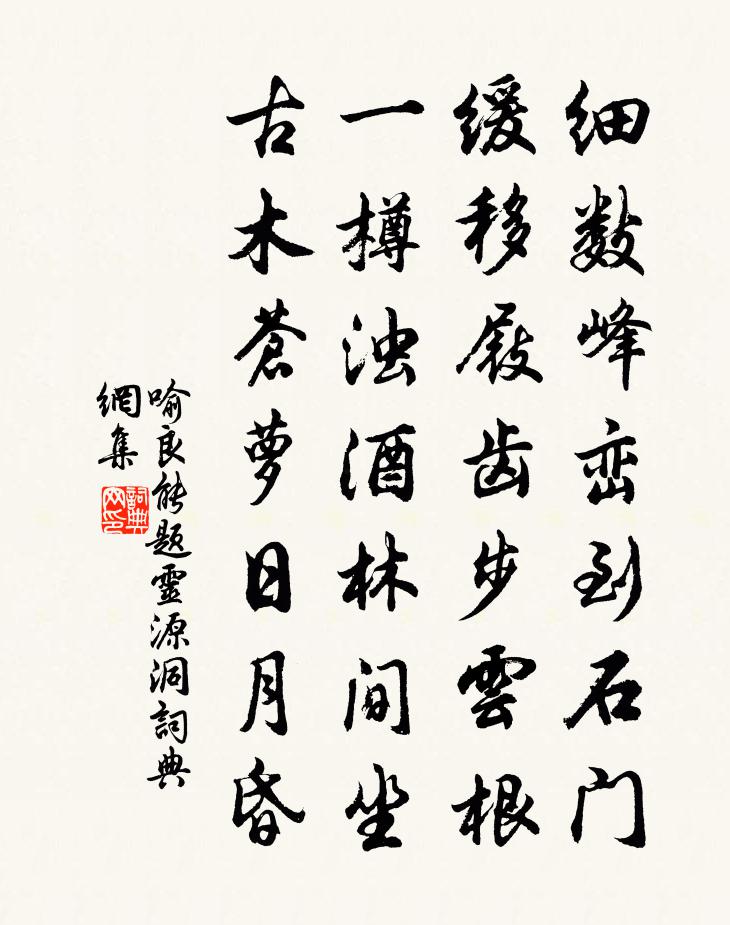 细数峰峦到石门
缓移屐齿步雲根
一樽浊酒林间坐
古木蒼萝日月昏
喻良能题靈源洞詞典
網集
詞典
网印